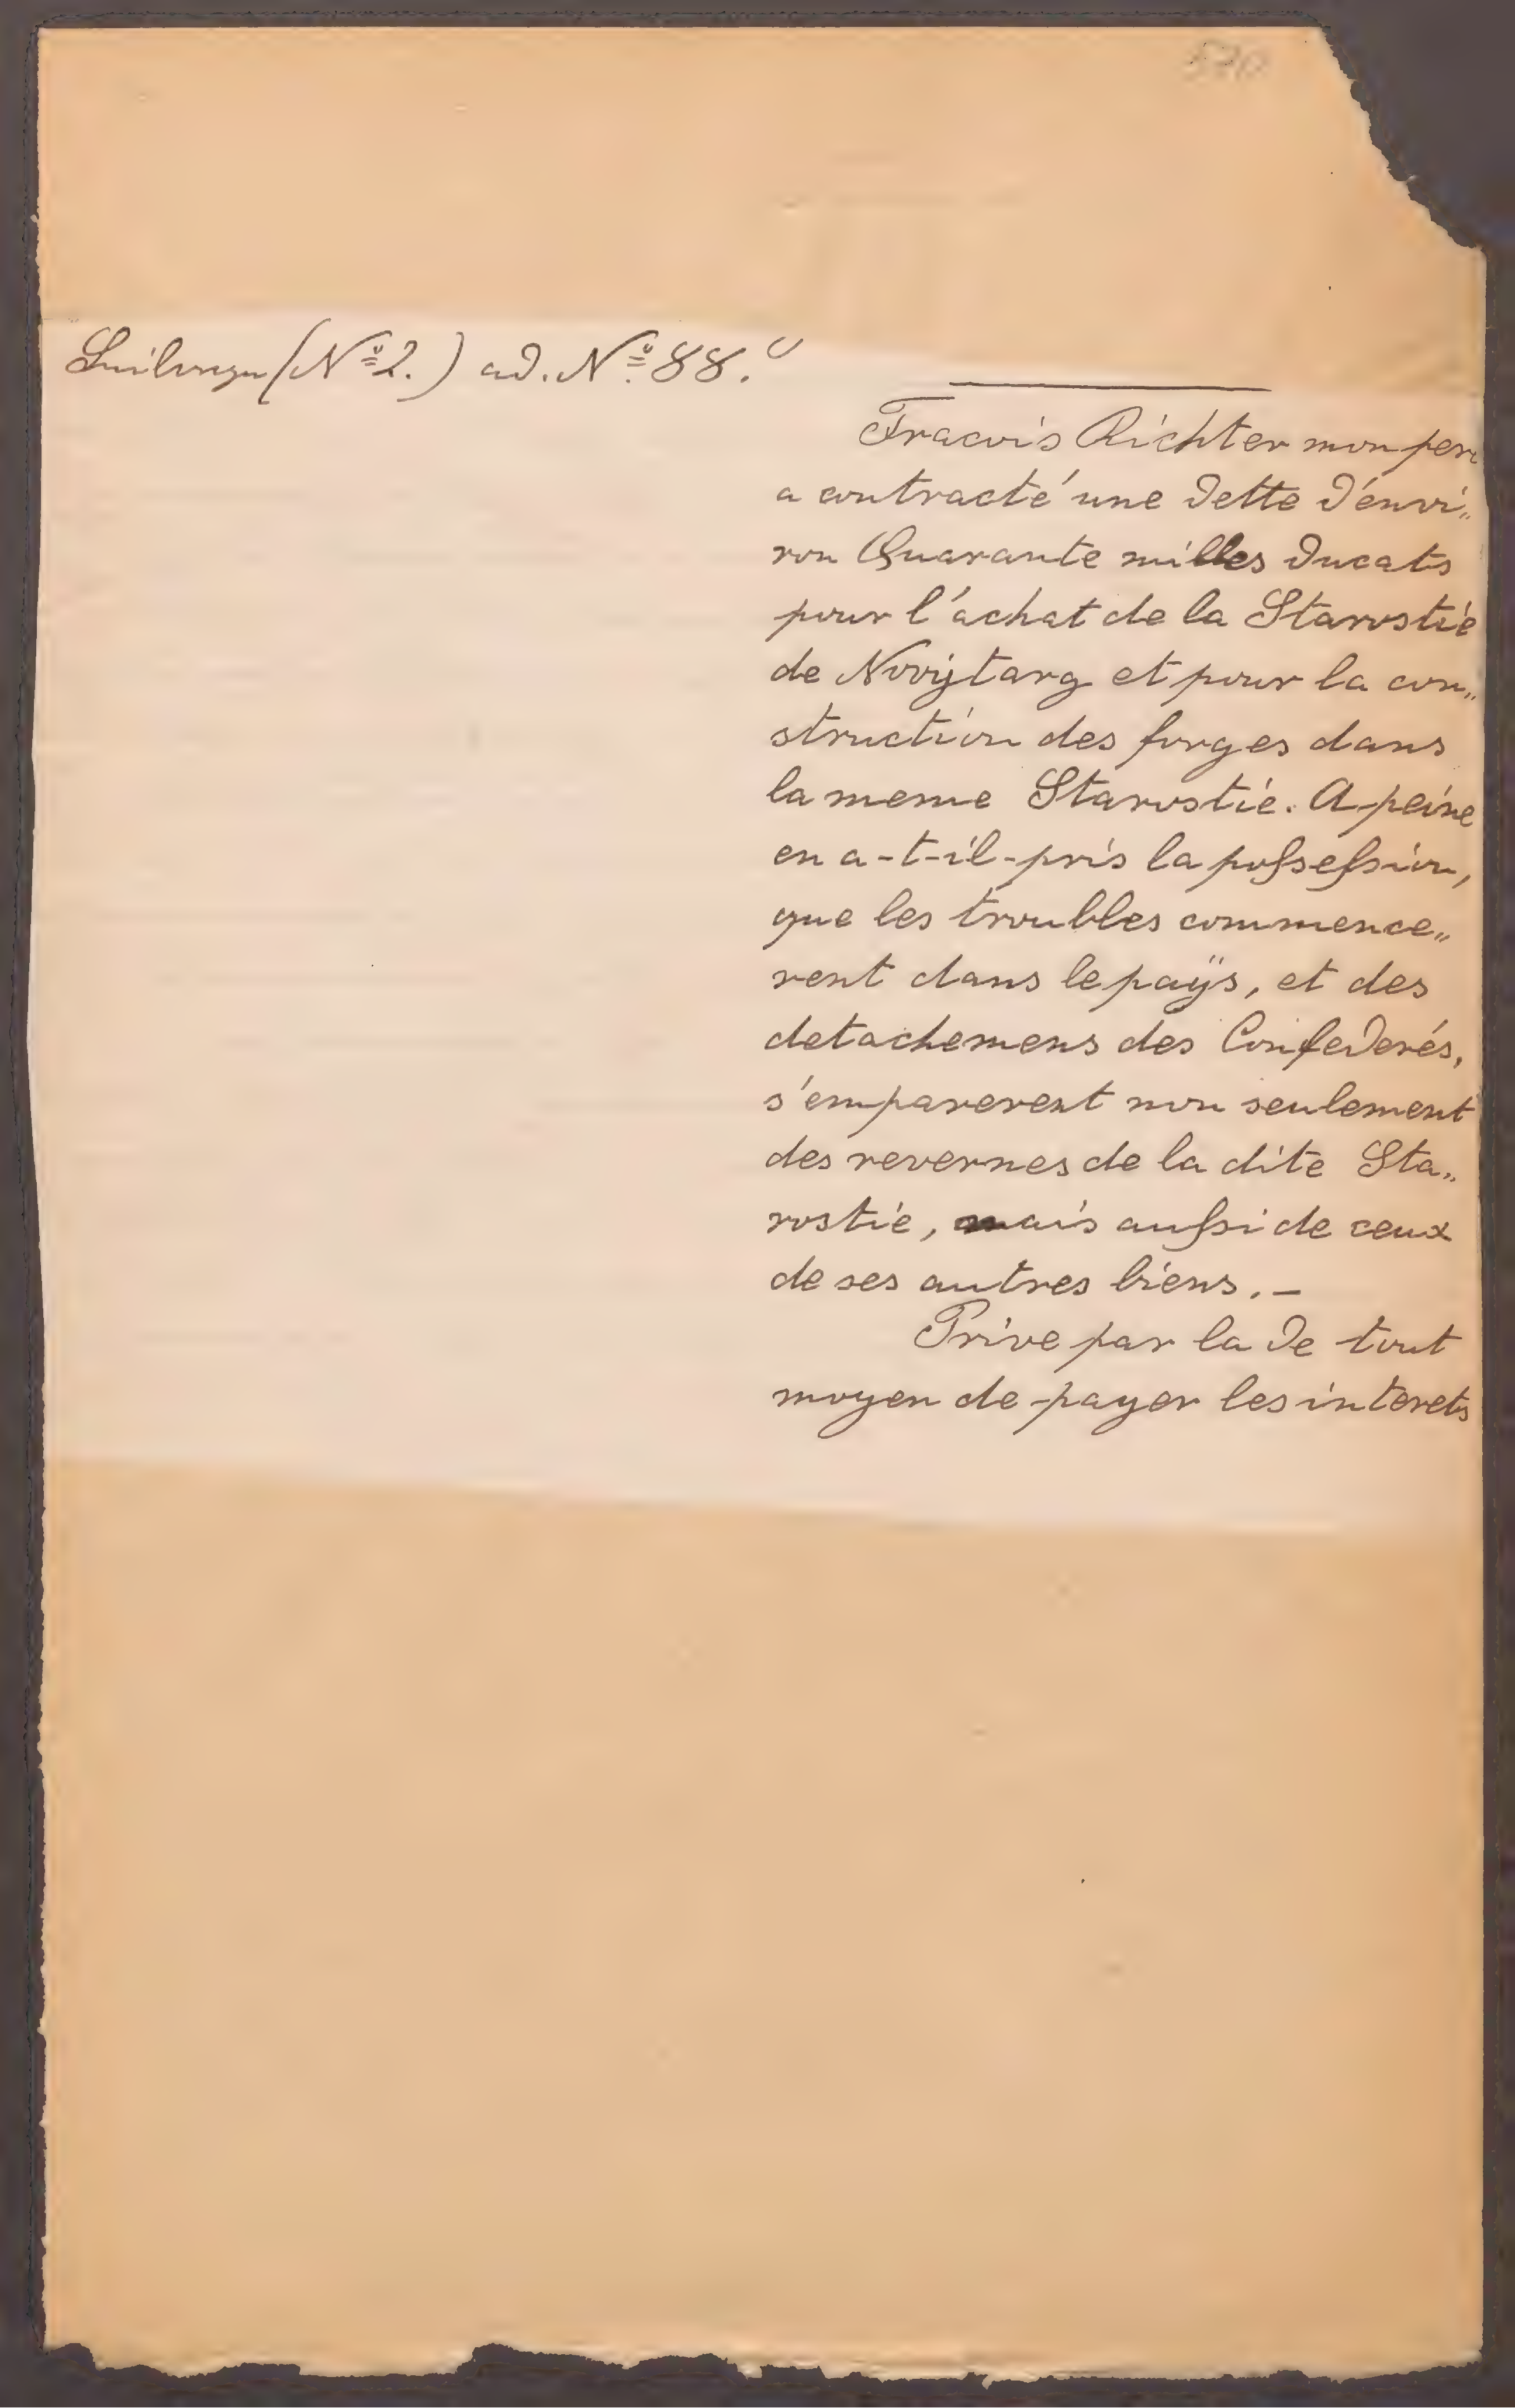 570
Beilage (Nº 2.) ad. Nº 88.
Fracois Richter mon pere
a contracté une dette d'envi„
ron Quarante milles ducats
pour l'achat de la Starostie
de Novÿtarg et pour la con„
struction des forges dans
la meme Starostie. A peine
en a-t-il-pris la poſseſsion,
que les troubles commence„
rent dans le paÿs, et des
detachemens des Confederés,
s'emparerent non seulement
des revernes de la dite Sta„
rostie, mais auſsi de ceux
de ses autres biens. –
Prive par la de tout
moyen de payer les interets